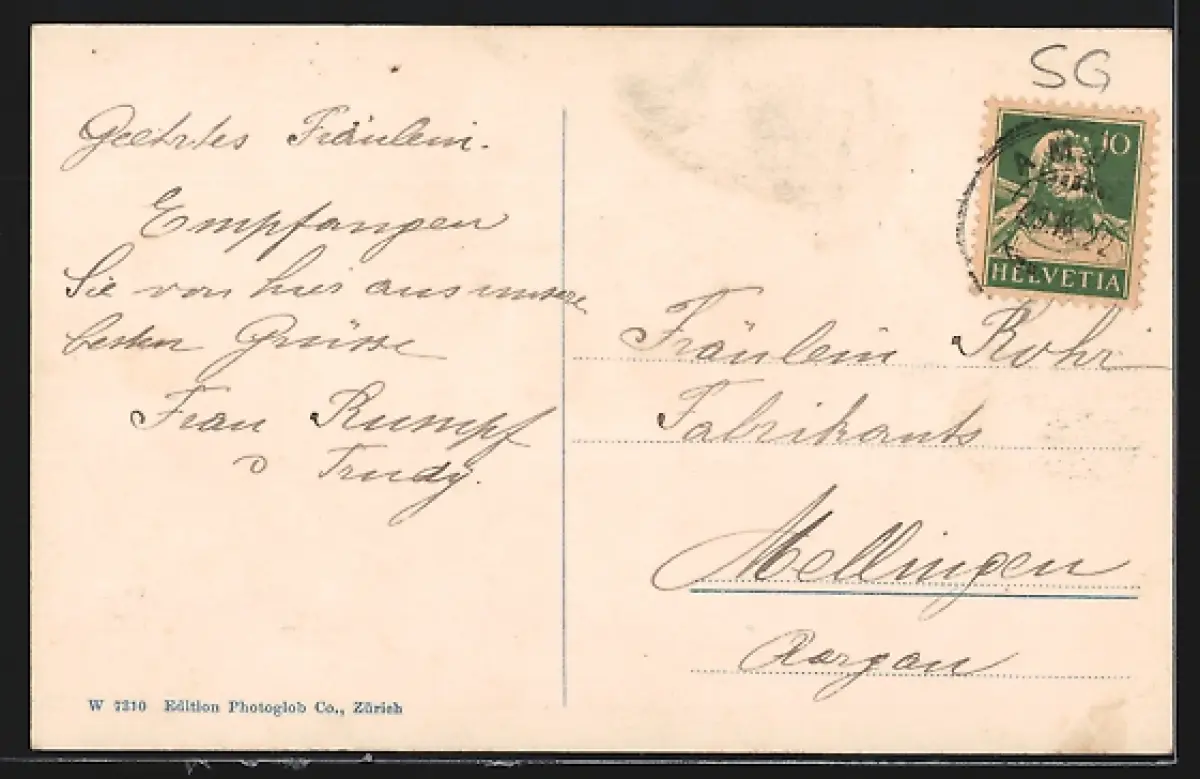 Geehrtes Fräulein.
Empfangen
Sie von hier aus unsere
besten Grüsse
Frau Rumpf
Trudy.
W 7210 Edition Photoglob Co., Zürich
SG
10
HELVETIA
Fräulein Rohr
Fabrikants
Mellingen
Aargau